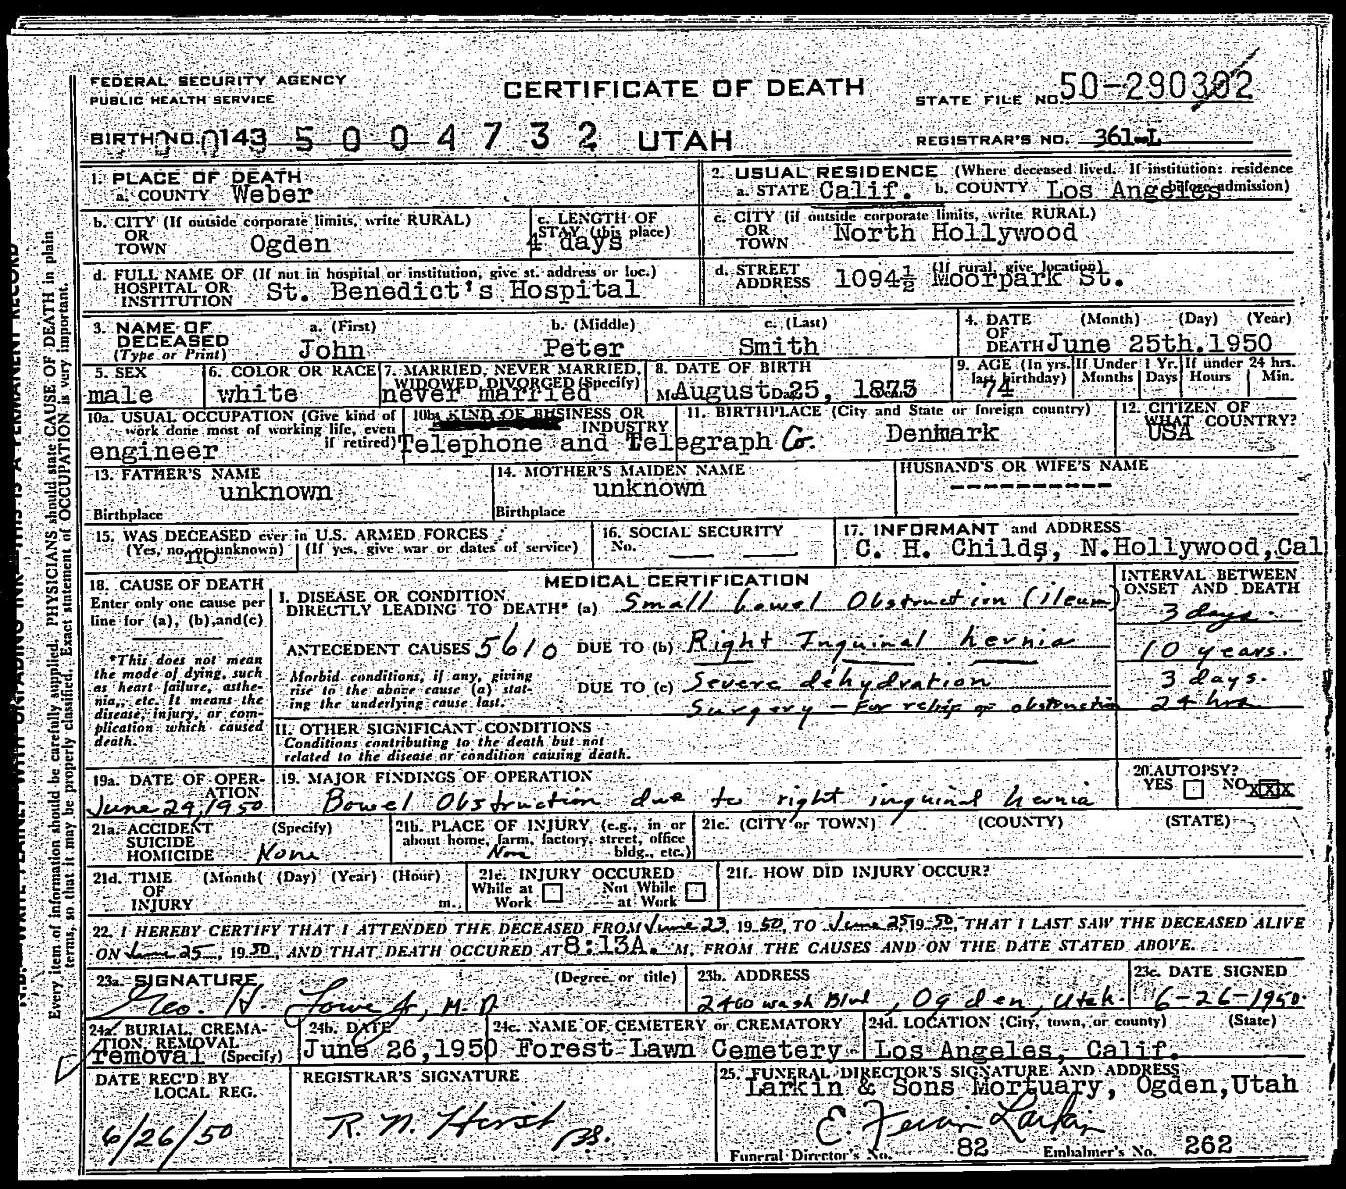 FEDERAL SECURITY AGENCY
PUBLIC HEALTH SERVICE
CERTIFICATE OF DEATH
STATE FILE NO. 50-290302
BIRTH NO. 0143 5004732 UTAH
REGISTRAR'S NO. 361-L
1. PLACE OF DEATH
a. COUNTY Weber
2. USUAL RESIDENCE (Where deceased lived. If institution: residence before admission)
a. STATE Calif. b. COUNTY Los Angeles
b. CITY (If outside corporate limits, write RURAL)
OR TOWN Ogden
c. LENGTH OF STAY (this place)
4 days
c. CITY (if outside corporate limits, write RURAL)
OR TOWN North Hollywood
d. FULL NAME OF (If not in hospital or institution, give st. address or loc.)
HOSPITAL OR INSTITUTION St. Benedict's Hospital
d. STREET ADDRESS (If rural, give location)
1094½ Moorpark St.
3. NAME OF DECEASED (Type or Print)
a. (First) b. (Middle) c. (Last)
John Peter Smith
4. DATE OF DEATH (Month) (Day) (Year)
June 25th. 1950
5. SEX
male
6. COLOR OR RACE
white
7. MARRIED, NEVER MARRIED, WIDOWED DIVORCED (Specify)
never married
8. DATE OF BIRTH
August 25, 1875
9. AGE (In yrs. last birthday)
74
If Under 1 Yr. Months Days
If under 24 hrs. Hours Min.
10a. USUAL OCCUPATION (Give kind of work done most of working life, even if retired)
engineer
10b. KIND OF BUSINESS OR INDUSTRY
Telephone and Telegraph Co.
11. BIRTHPLACE (City and State or foreign country)
Denmark
12. CITIZEN OF WHAT COUNTRY?
USA
13. FATHER'S NAME
unknown
Birthplace
14. MOTHER'S MAIDEN NAME
unknown
Birthplace
HUSBAND'S OR WIFE'S NAME
----------
15. WAS DECEASED ever in U.S. ARMED FORCES
(Yes, no, or unknown) (If yes, give war or dates of service)
no
16. SOCIAL SECURITY
No. — —
17. INFORMANT and ADDRESS
C. H. Childs, N.Hollywood, Cal
18. CAUSE OF DEATH
Enter only one cause per line for (a), (b), and (c)
*This does not mean the mode of dying, such as heart failure, asthenia, etc. It means the disease, injury, or complication which caused death.
MEDICAL CERTIFICATION
INTERVAL BETWEEN ONSET AND DEATH
I. DISEASE OR CONDITION DIRECTLY LEADING TO DEATH* (a) Small bowel Obstruction (ileum) 3 days.
ANTECEDENT CAUSES 5610 DUE TO (b) Right Inguinal hernia 10 years.
Morbid conditions, if any, giving rise to the above cause (a) stating the underlying cause last.
DUE TO (c) Severe dehydration 3 days.
Surgery — For obstruction 24 hrs
II. OTHER SIGNIFICANT CONDITIONS
Conditions contributing to the death but not related to the disease or condition causing death.
19a. DATE OF OPERATION
June 24, 1950
19. MAJOR FINDINGS OF OPERATION
Bowel Obstruction due to right inguinal hernia
20. AUTOPSY?
YES NO XXX
21a. ACCIDENT SUICIDE HOMICIDE (Specify)
None
21b. PLACE OF INJURY (e.g., in or about home, farm, factory, street, office bldg., etc.)
21c. (CITY or TOWN) (COUNTY) (STATE)
21d. TIME OF INJURY (Month) (Day) (Year) (Hour) m.
21e. INJURY OCCURED
While at Work Not While at Work
21f. HOW DID INJURY OCCUR?
22. I HEREBY CERTIFY THAT I ATTENDED THE DECEASED FROM June 23, 1950, TO June 25 1950, THAT I LAST SAW THE DECEASED ALIVE
ON June 25, 1950, AND THAT DEATH OCCURED AT 8:13A. M, FROM THE CAUSES AND ON THE DATE STATED ABOVE.
23a. SIGNATURE (Degree or title)
Geo. H. Lowe Jr, M.D
23b. ADDRESS
2460 Wash Blvd, Ogden, Utah
23c. DATE SIGNED
6-26-1950
24a. BURIAL, CREMATION, REMOVAL (Specify)
removal
24b. DATE
June 26, 1950
24c. NAME OF CEMETERY or CREMATORY
Forest Lawn Cemetery
24d. LOCATION (City, town, or county) (State)
Los Angeles, Calif.
DATE REC'D BY LOCAL REG.
6/26/50
REGISTRAR'S SIGNATURE
25. FUNERAL DIRECTOR'S SIGNATURE AND ADDRESS
Larkin & Sons Mortuary, Ogden, Utah
Larkin
Funeral Director's No. 82 Embalmer's No. 262
Every item of information should be carefully supplied. PHYSICIANS should state CAUSE OF DEATH in plain
terms, so that it may be properly classified. Exact statement of OCCUPATION is very important.